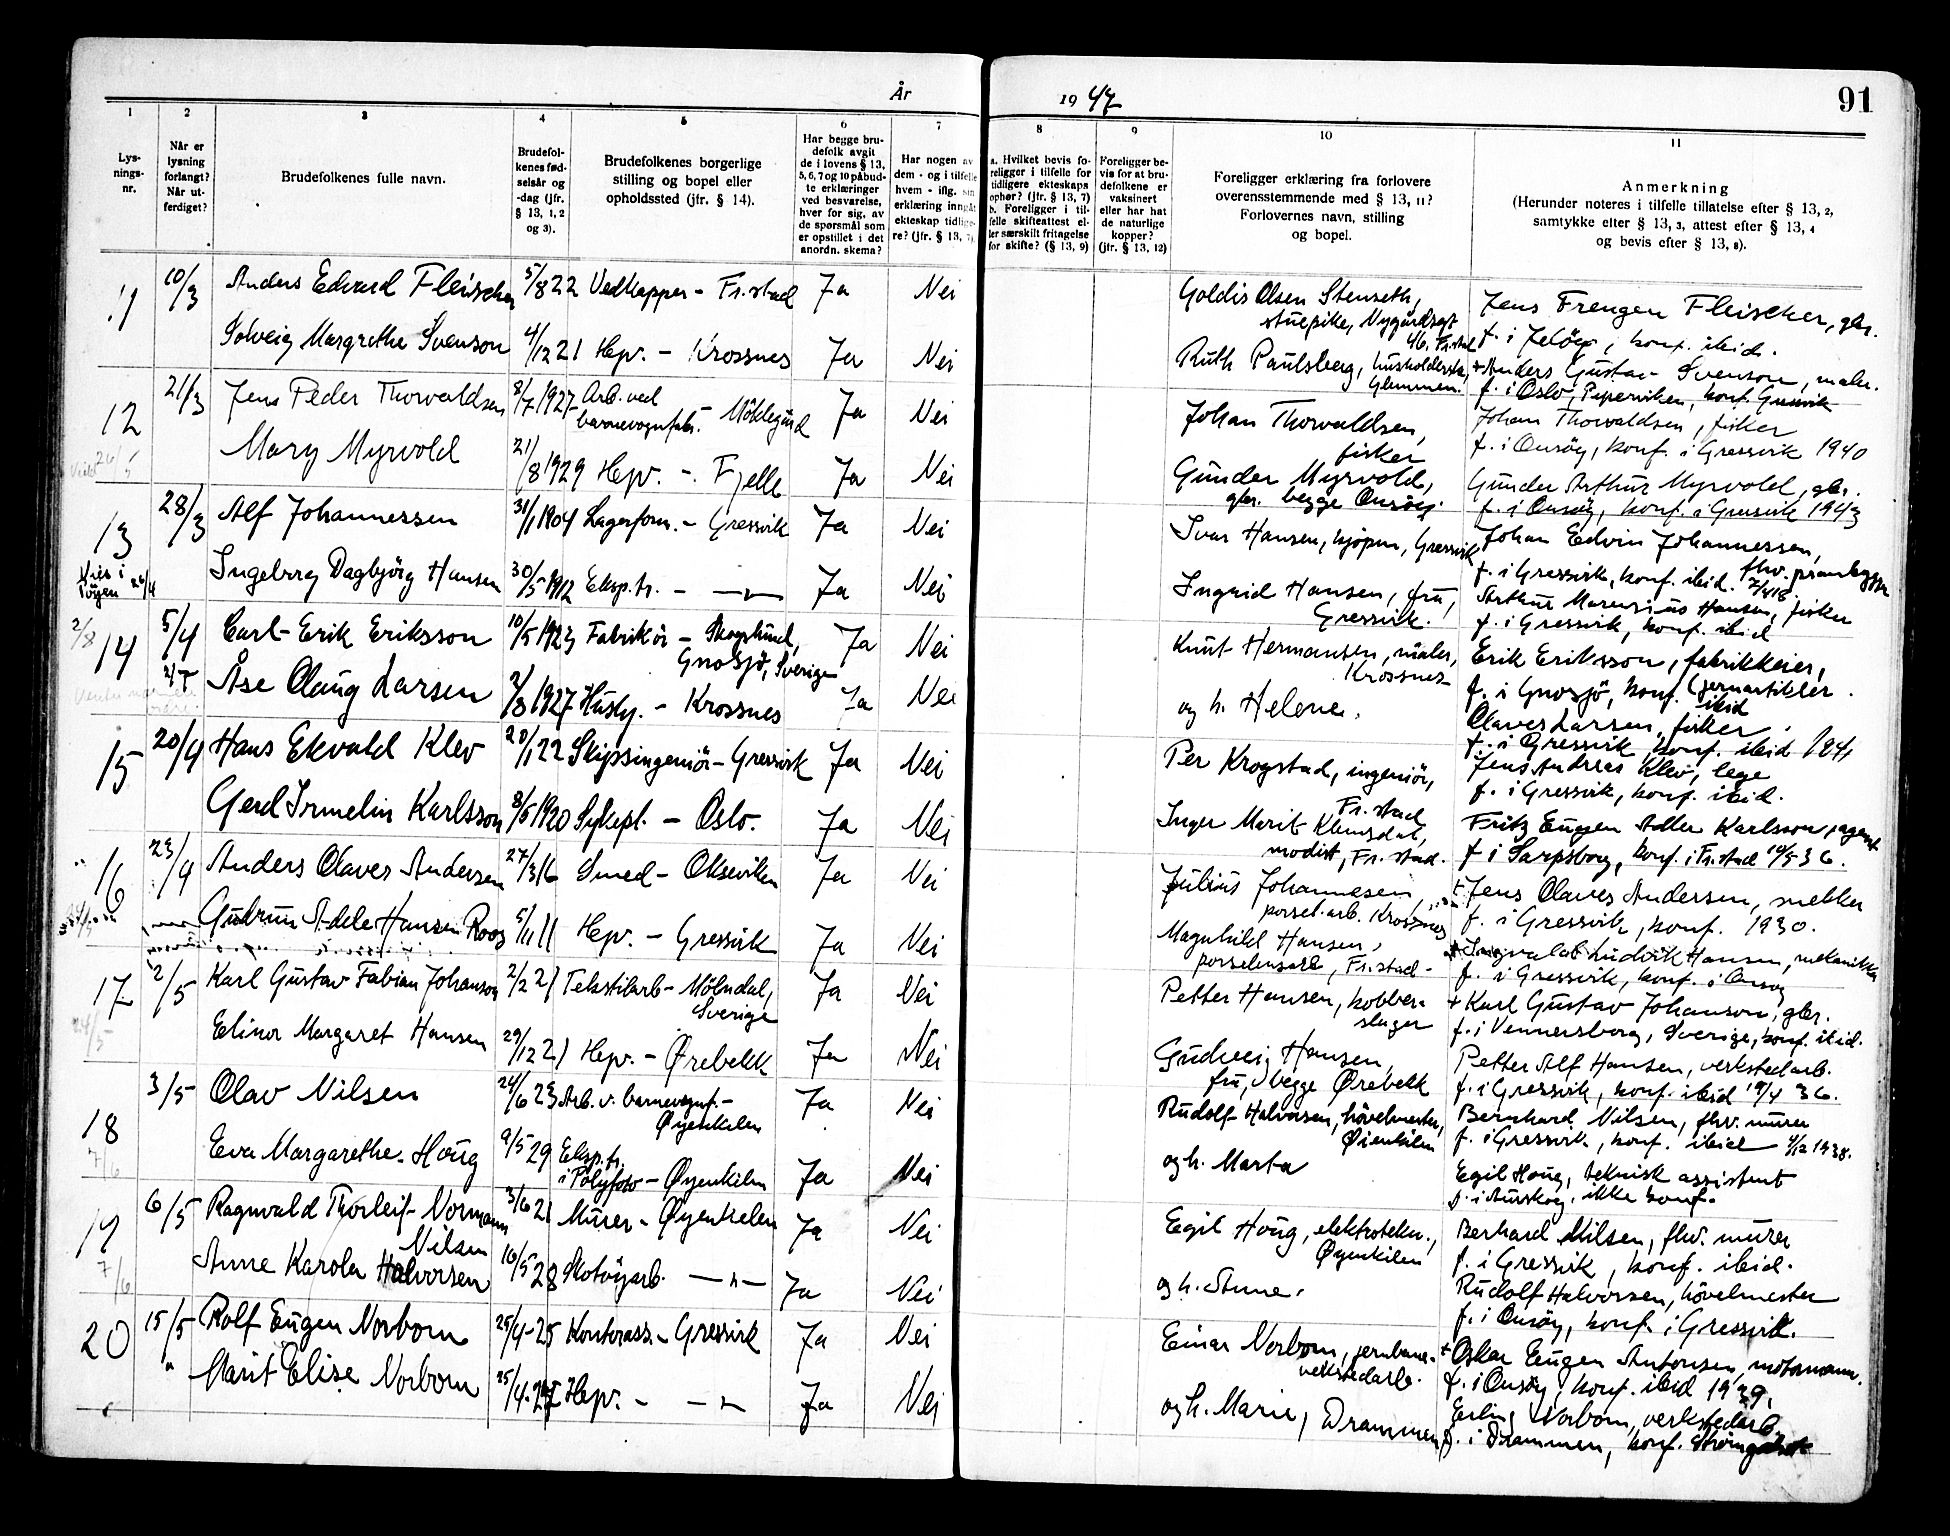 År
1947
91
1
2
3
4
5
6
7
8
9
10
11
Lys-
nings-
nr.
Når er
lysning
forlangt?
Når ut-
ferdiget?
Brudefolkenes fulle navn.
Brudefol-
kenes fød-
selsår og
-dag (jfr.
§ 13, 1, 2
og 3).
Brudefolkenes borgerlige
stilling og bopel eller
opholdssted (jfr. § 14).
Har begge bru-
defolk avgit
de i lovens § 13,
5, 6, 7 og 10 påbud-
te erklæringer
ved besvarelse,
hver for sig, av
de spørsmål som
er opstillet i det
anordn. skema?
Har nogen av
dem - og i tilfelle
hvem - iflg. sin
erklæring inngåt
ekteskap tidlige-
re? (jfr. § 13, 7)
a. Hvilket bevis fo-
religger i tilfelle for
tidligere ekteskaps
ophør? (jfr. § 13, 7)
b. Foreligger i til-
felle skifteattest el-
ler særskilt fritagelse
for skifte? (§ 13, 9)
Foreligger be-
vis for at bru-
defolkene er
vaksinert
eller har hat
de naturlige
kopper?
(jfr. § 13, 12)
Foreligger erklæring fra forlovere
overensstemmende med § 13, 11?
Forlovernes navn, stilling
og bopel.
Anmerkning
(Herunder noteres i tilfelle tillatelse efter § 13, 2,
samtykke efter § 13, 3, attest efter § 13, 4
og bevis efter § 13, 8).
11 10/3 Anders Edvard Fleischer 5/8 22 Vedkapper - Fr.stad Ja Nei
Goldis Olsen Stenseth,
stuepike, Nygårdsgt
46. Fr.stad
Jens Frengen Fleischer, gbr.
f. i Jeløy, konf. ibid.
Solveig Margrethe Svenson 4/12 21 Hpv. - Krossnes Ja Nei
Ruth Paulsberg, husholderske,
Glemmen.
+ Anders Gustav Svenson, maler.
f. i Oslo, Pipervirken, konf. Gressvik
12 21/3 Jens Peder Thorvaldsen 8/7 1927 Arb. ved
barnevognfabr. Möklegård Ja Nei
Johan Thorvaldsen,
fisker
Johan Thorvaldsen, fisker
f. i Onsöy, konf. i Gressvik 1940
Mary Myrvold 21/8 1929 Hpv. - Fjelle Ja Nei
Gunder Myrvold,
gbr. begge Onsöy.
Gunder Arthur Myrvold, gbr.
f. i Onsöy, konf. i Gressvik 1943
13 28/3 Alf Johannessen 31/1 1904 Lagerform. - Gressvik Ja Nei
Ivar Hansen, kjøpm, Gressvik
Johan Edvin Johannessen,
fhv. prambygger
f. i Gressvik, konf. ibid.
Vies i
Töyen 26/4
Ingeborg Dagbjörg Hansen 30/5 1912 Eksp.tr. - -"- Ja Nei
Ingrid Hansen, fru,
Gressvik.
Arthur Marensius Hansen, fisker
f. i Gressvik, konf. ibid
2/8 14 5/4 Carl-Erik Eriksson 10/5 1923 Fabrikör - Skogslund,
Gnosjö, Sverige Ja Nei
Knut Hermansen, maler,
Krossnes
Erik Eriksson, fabrikkeier,
(jernartikler
f. i Gnosjö, konf. ibid
Åse Olaug Larsen 2/8 1927 Husly. - Krossnes Ja Nei
og h. Helene.
Olaves Larsen, fisker
f. i Gressvik, konf. ibid 1841
15 20/4 Hans Ekvald Klev 20/1 22 Skipsingeniör - Gressvik Ja Nei
Per Krogstad, ingeniör,
Fr.stad
Jens Andreas Klev, lege
f. i Gressvik, konf. ibid.
Gerd Irmelin Karlsson 8/5 1920 Sykepl. - Oslo. Ja Nei
Inger Marit Klemsdal,
modist, Fr.stad.
Fritz Eugen Adler Karlsson, agent
f. i Sarpsborg, konf. i Fr.stad 10/5 36.
16 23/4 Anders Olaves Andersen 27/3 16 Smed - Okseviken Ja Nei
Julius Johannesen,
porsel.arb. Krossnes
+ Jens Olaves Andersen, snekker
f. i Gressvik, konf. 1930.
Gudrun Adele Hansen Roos 5/11 11 Hpv. - Gressvik Ja Nei
Magnhild Hansen,
porselensarb, Fr.stad -
Ingvald Ludvik Hansen, mekanikker
f. i Gressvik, konf. i Onsöy
17 2/5 Karl Gustav Fabian Johanson 2/2 21 Tekstilarb - Mölndal,
Sverige Ja Nei
Petter Hansen, kobber-
slager
+ Karl Gustav Johanson, gbr.
f. i Vennersborg, Sverige, konf. ibid.
24/5
Elinor Margaret Hansen 29/12 21 Hpv. - Ørebekk Ja Nei
Gudveig Hansen,
fru, begge Ørebekk
Petter Alf Hansen, verkstedarb.
f. i Gressvik, konf. ibid 19/4 36.
18 3/5 Olav Nilsen 24/6 23 Arb. v. barnevognf. -
Øyenkilen Ja Nei
Rudolf Halvorsen, hövelmester,
Øienkilen
Bernhard Nilsen, fhv. murer
f. i Gressvik, konf. ibid 4/12 1938.
7/6
Eva Margarethe Houg 9/5 29 Eksp.tr.
i Polyfoto - Øyenkilen Ja Nei
og h. Marta
Egil Houg, teknisk assistent
f. i Aurskog, ikke konf.
19 6/5 Ragnvald Thorleif Normann
Nilsen 3/6 21 Murer - Øyenkilen Ja Nei
Egil Houg, elektrotekn.,
Øyenkilen
Berhard Nilsen, fhv. murer
f. i Gressvik, konf. ibid.
7/6
Anne Karola Halvorsen 10/5 28 Skotöyarb. -"- Ja Nei
og h. Anne.
Rudolf Halvorsen, hövelmester
f. i Onsöy, konf. i Gressvik.
20 15/5 Rolf Eugen Norbom 25/4-25 Kontorass. - Gressvik Ja Nei
Einar Norbom, jernbane-
verkstedarb.
+ Oskar Eugen Antonsen, motormann.
f. i Onsöy, konf. ibid 1939.
" Marit Elise Norbom 25/4-27 Hpv. - -"- Ja Nei
og h. Marie, Drammen
Erling Norbom, verkstedarb.
f. i Drammen, konf. Strömgodset